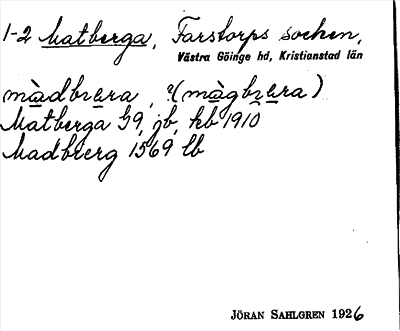 1-2 Matberga, Farstorps socken,
Västra Göinge hd, Kristianstad län
màdbræra, ?(màgbræra)
Matberga G9, jb, kb 1910
Madbierg 1569 lb
JÖRAN SAHLGREN 1926